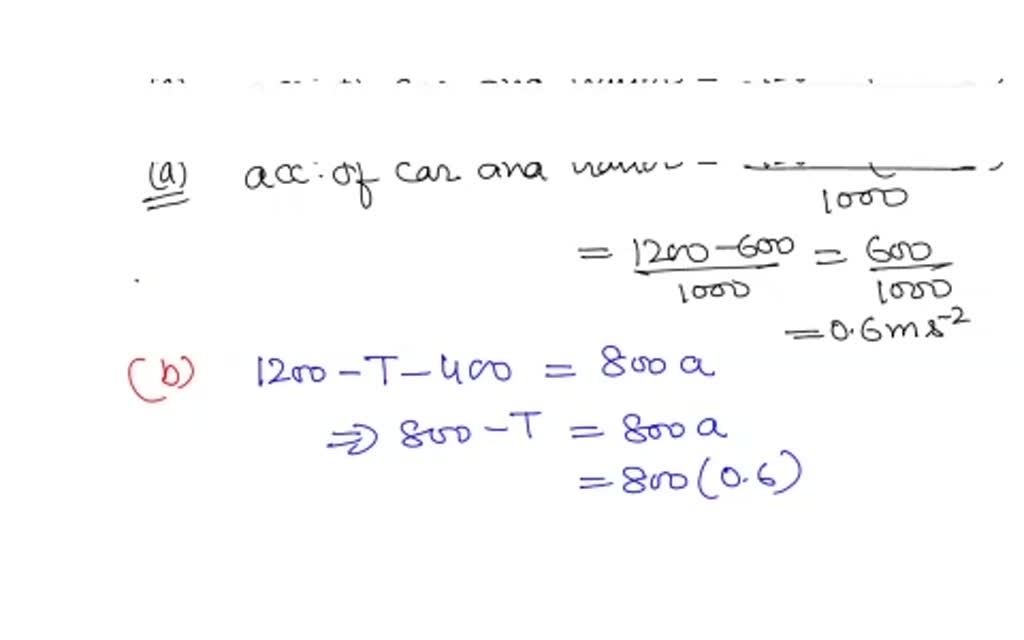 (a) acc: of car and =
1000
= 1200-600/1000 = 600/1000
= 0.6ms⁻²
(b) 1200-T-400 = 800a
⇒ 800-T = 800a
= 800(0.6)